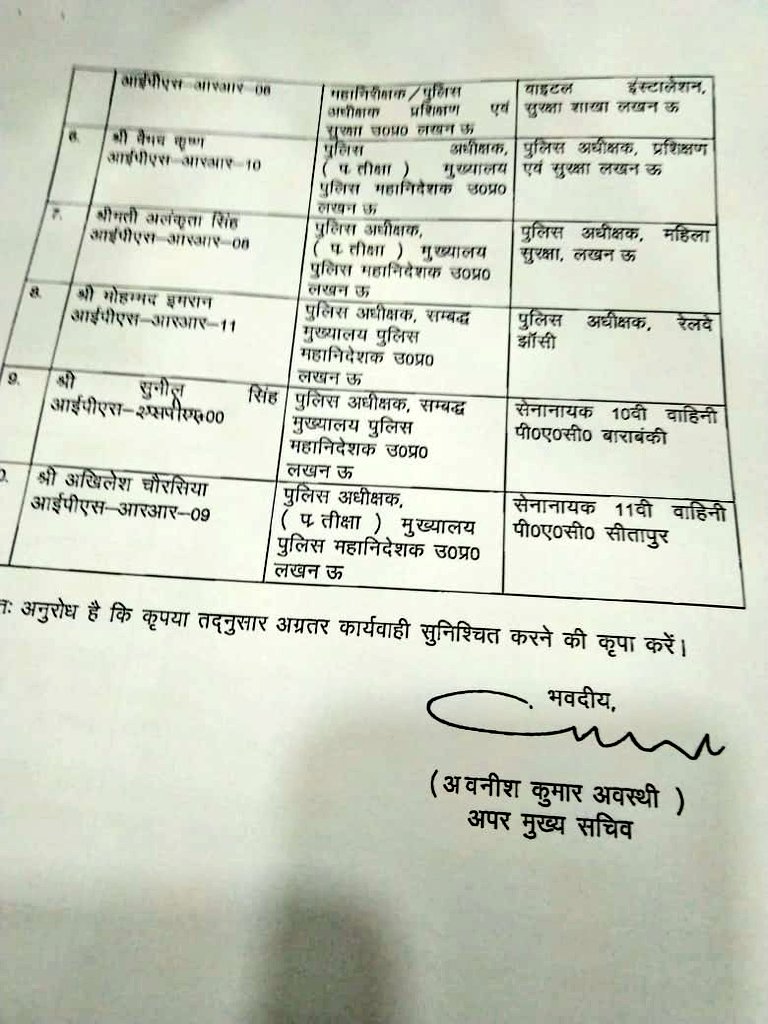 आईपीएस-आरआर 06
महानिरीक्षक/पुलिस
अधीक्षक प्रशिक्षण एवं
सुरक्षा उ0प्र0 लखन ऊ
वाइटल इंस्टालेशन,
सुरक्षा शाखा लखन ऊ
6.
श्री वैभव कृष्ण
आईपीएस-आरआर-10
पुलिस अधीक्षक,
( प्र तीक्षा ) मुख्यालय
पुलिस महानिदेशक उ0प्र0
लखन ऊ
पुलिस अधीक्षक, प्रशिक्षण
एवं सुरक्षा लखन ऊ
7.
श्रीमती अलंकृता सिंह
आईपीएस-आरआर-08
पुलिस अधीक्षक,
( प्र तीक्षा ) मुख्यालय
पुलिस महानिदेशक उ0प्र0
लखन ऊ
पुलिस अधीक्षक, महिला
सुरक्षा, लखन ऊ
8.
श्री मोहम्मद इमरान
आईपीएस-आरआर-11
पुलिस अधीक्षक, सम्बद्ध
मुख्यालय पुलिस
महानिदेशक उ0प्र0
लखन ऊ
पुलिस अधीक्षक, रेलवे
झॉसी
9.
श्री सुनील सिंह
आईपीएस-एसपीएस00
पुलिस अधीक्षक, सम्बद्ध
मुख्यालय पुलिस
महानिदेशक उ0प्र0
लखन ऊ
सेनानायक 10वी वाहिनी
पी0ए0सी0 बाराबंकी
0.
श्री अखिलेश चौरसिया
आईपीएस-आरआर-09
पुलिस अधीक्षक,
( प्र तीक्षा ) मुख्यालय
पुलिस महानिदेशक उ0प्र0
लखन ऊ
सेनानायक 11वी वाहिनी
पी0ए0सी0 सीतापुर
तः अनुरोध है कि कृपया तद्नुसार अग्रतर कार्यवाही सुनिश्चित करने की कृपा करें।
भवदीय,
(अवनीश कुमार अवस्थी )
अपर मुख्य सचिव